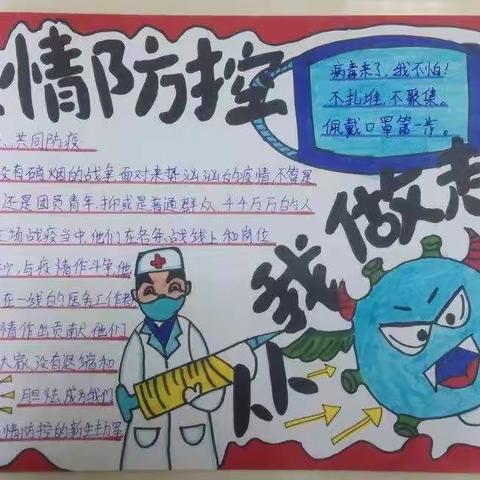 情防控
病毒来了,我不怕!
不扎堆,不聚集。
佩戴口罩第一步。
我做起
共同防疫
没有硝烟的战争,面对来势汹汹的疫情,不管是
还是团员青年,抑或是普通群众,44万万的人
场战疫当中,他们在各条战线上和岗位
与疫情作斗争,他
在一线的医务工作
情作出贡献,他们
大家,没有退缩和
胆怯,成为我们
情防控的新生主力军